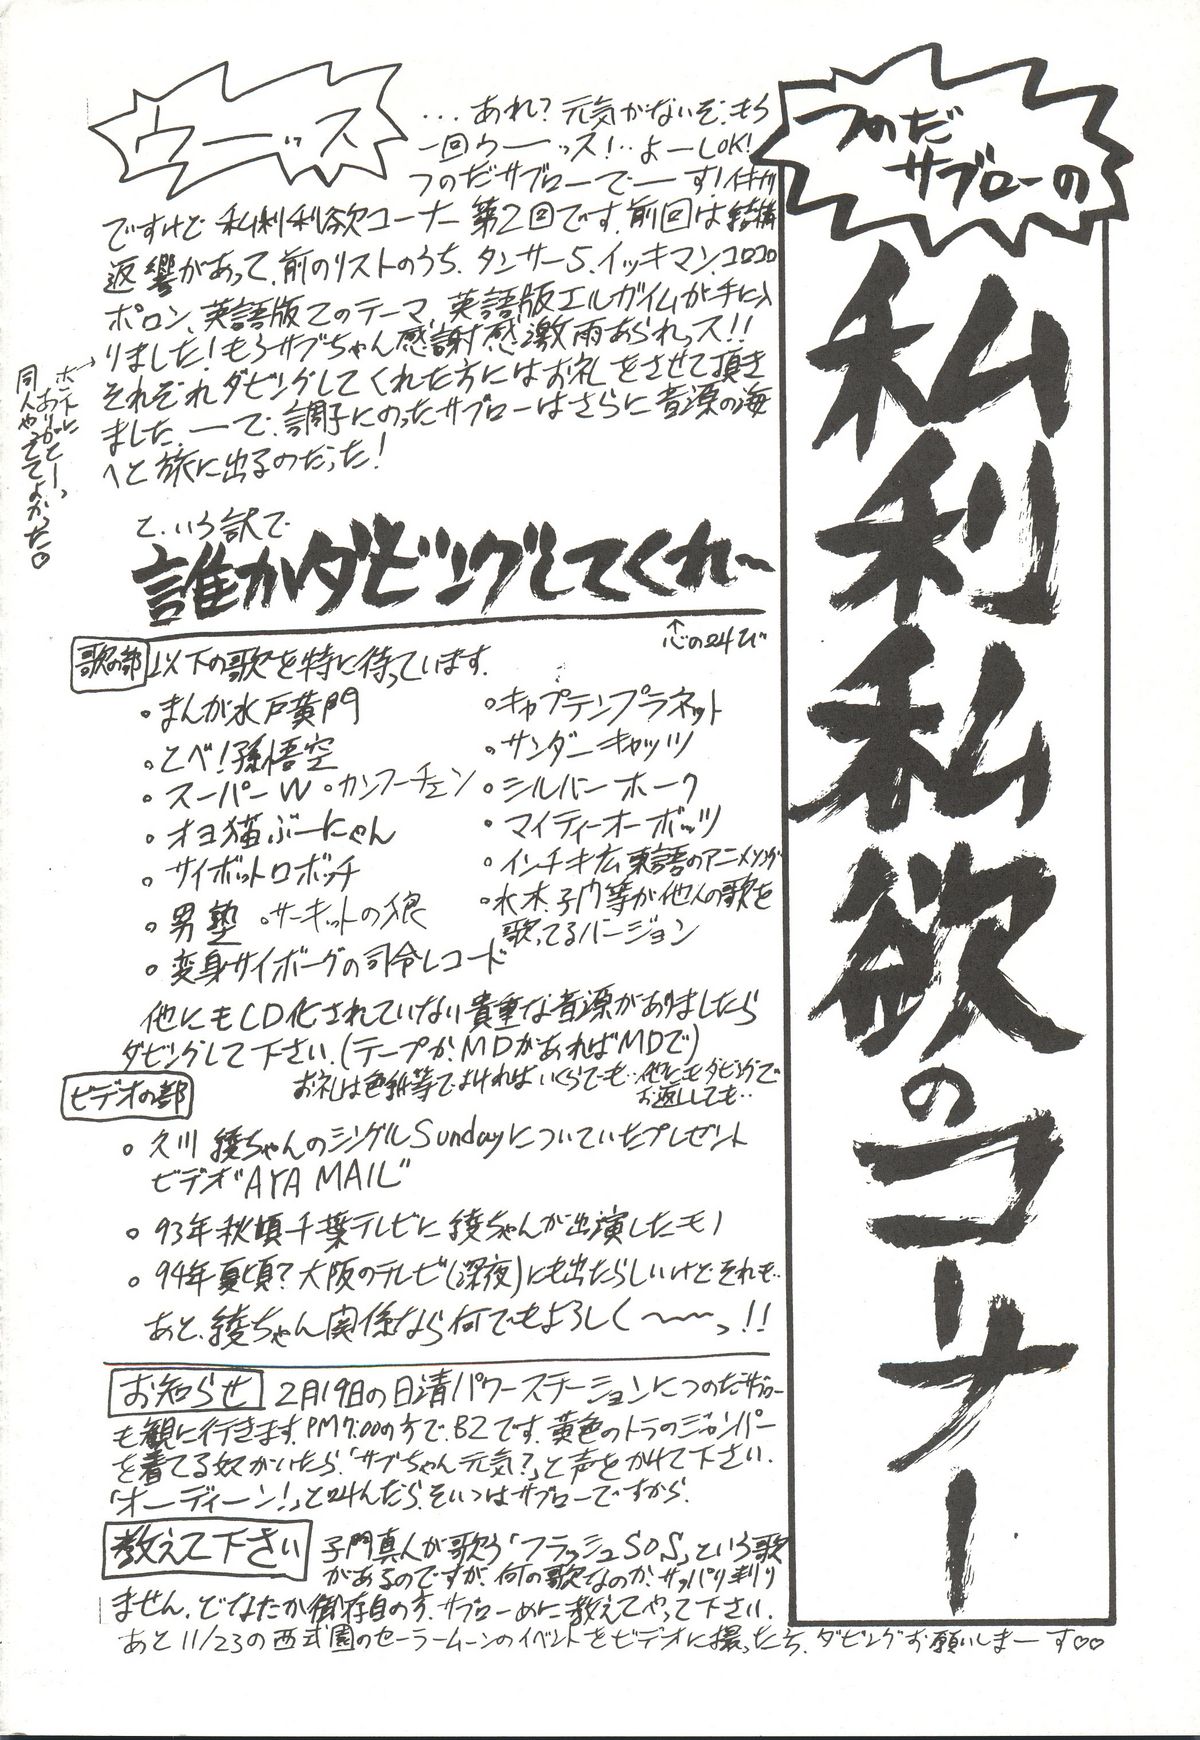 つのだ
サブローの
私利私欲のコーナー
ウーッス
...あれ?元気がないぞ、もう
一回ウーーッス!‥よーしOK!
つのだサブローでーーす!イキナリ
ですけど私利私欲コーナー第2回です。前回は結構
返響があって、前のリストのうち、タンサー5、イッキマン、コロコロ
ポロン、英語版てのテーマ、英語版エルガイムが手に入
りました!もうサブちゃん感謝感激雨あられっス!!
それぞれダビングしてくれた方にはお礼をさせて頂き
ました。ーーで、調子にのったサブローはさらに音源の海
へと旅に出るのだった!
ホントに
ありがとーっ
同人やっててよかった♡
と、いう訳で
誰かダビングしてくれ〜
↑
心の叫び
歌の部 以下の歌を特に待っています。
・まんが水戸黄門
・とべ!孫悟空
・スーパーW ・カンフーチェン
・オヨ猫ぶーにゃん
・サイボットロボッチ
・男塾 ・サーキットの狼
・変身サイボーグの司令レコード
・キャプテンプラネット
・サンダーキャッツ
・シルバーホーク
・マイティーオーボッツ
・インチキ広東語のアニメソング
・水木、子門等が他人の歌を
歌ってるバージョン
他にもCD化されていない貴重な音源がありましたら
ダビングして下さい。(テープか、MDがあればMDで)
お礼は色紙等でよければいくらでも…他にもダビングで
お返ししても‥
ビデオの部
・久川綾ちゃんのシングルSundayについていたプレゼント
ビデオ"AYA MAIL"
・93年秋頃千葉テレビに綾ちゃんが出演したモノ
・94年夏頃?大阪のテレビ(深夜)にも出たらしいけどそれも‥
あと、綾ちゃん関係なら何でもよろしく〜〜〜っ!!
お知らせ 2月19日の日清パワーステーションにつのだサブロー
も観に行きます。PM7:00の方でB2です。黄色のトラのジャンパー
を着てる奴がいたら、「サブちゃん元気?」と声をかけて下さい。
「オーディーン!」と叫んだら、そいつはサブローですから。
教えて下さい 子門真人が歌う「フラッシュSOS」という歌
があるのですが、何の歌なのか、サッパリ判り
ません。どなたか御存自の方、サブローめに教えてやって下さい。
あと11/23の西武園のセーラームーンのイベントをビデオに撮った方、ダビングお願いしまーす♡♡